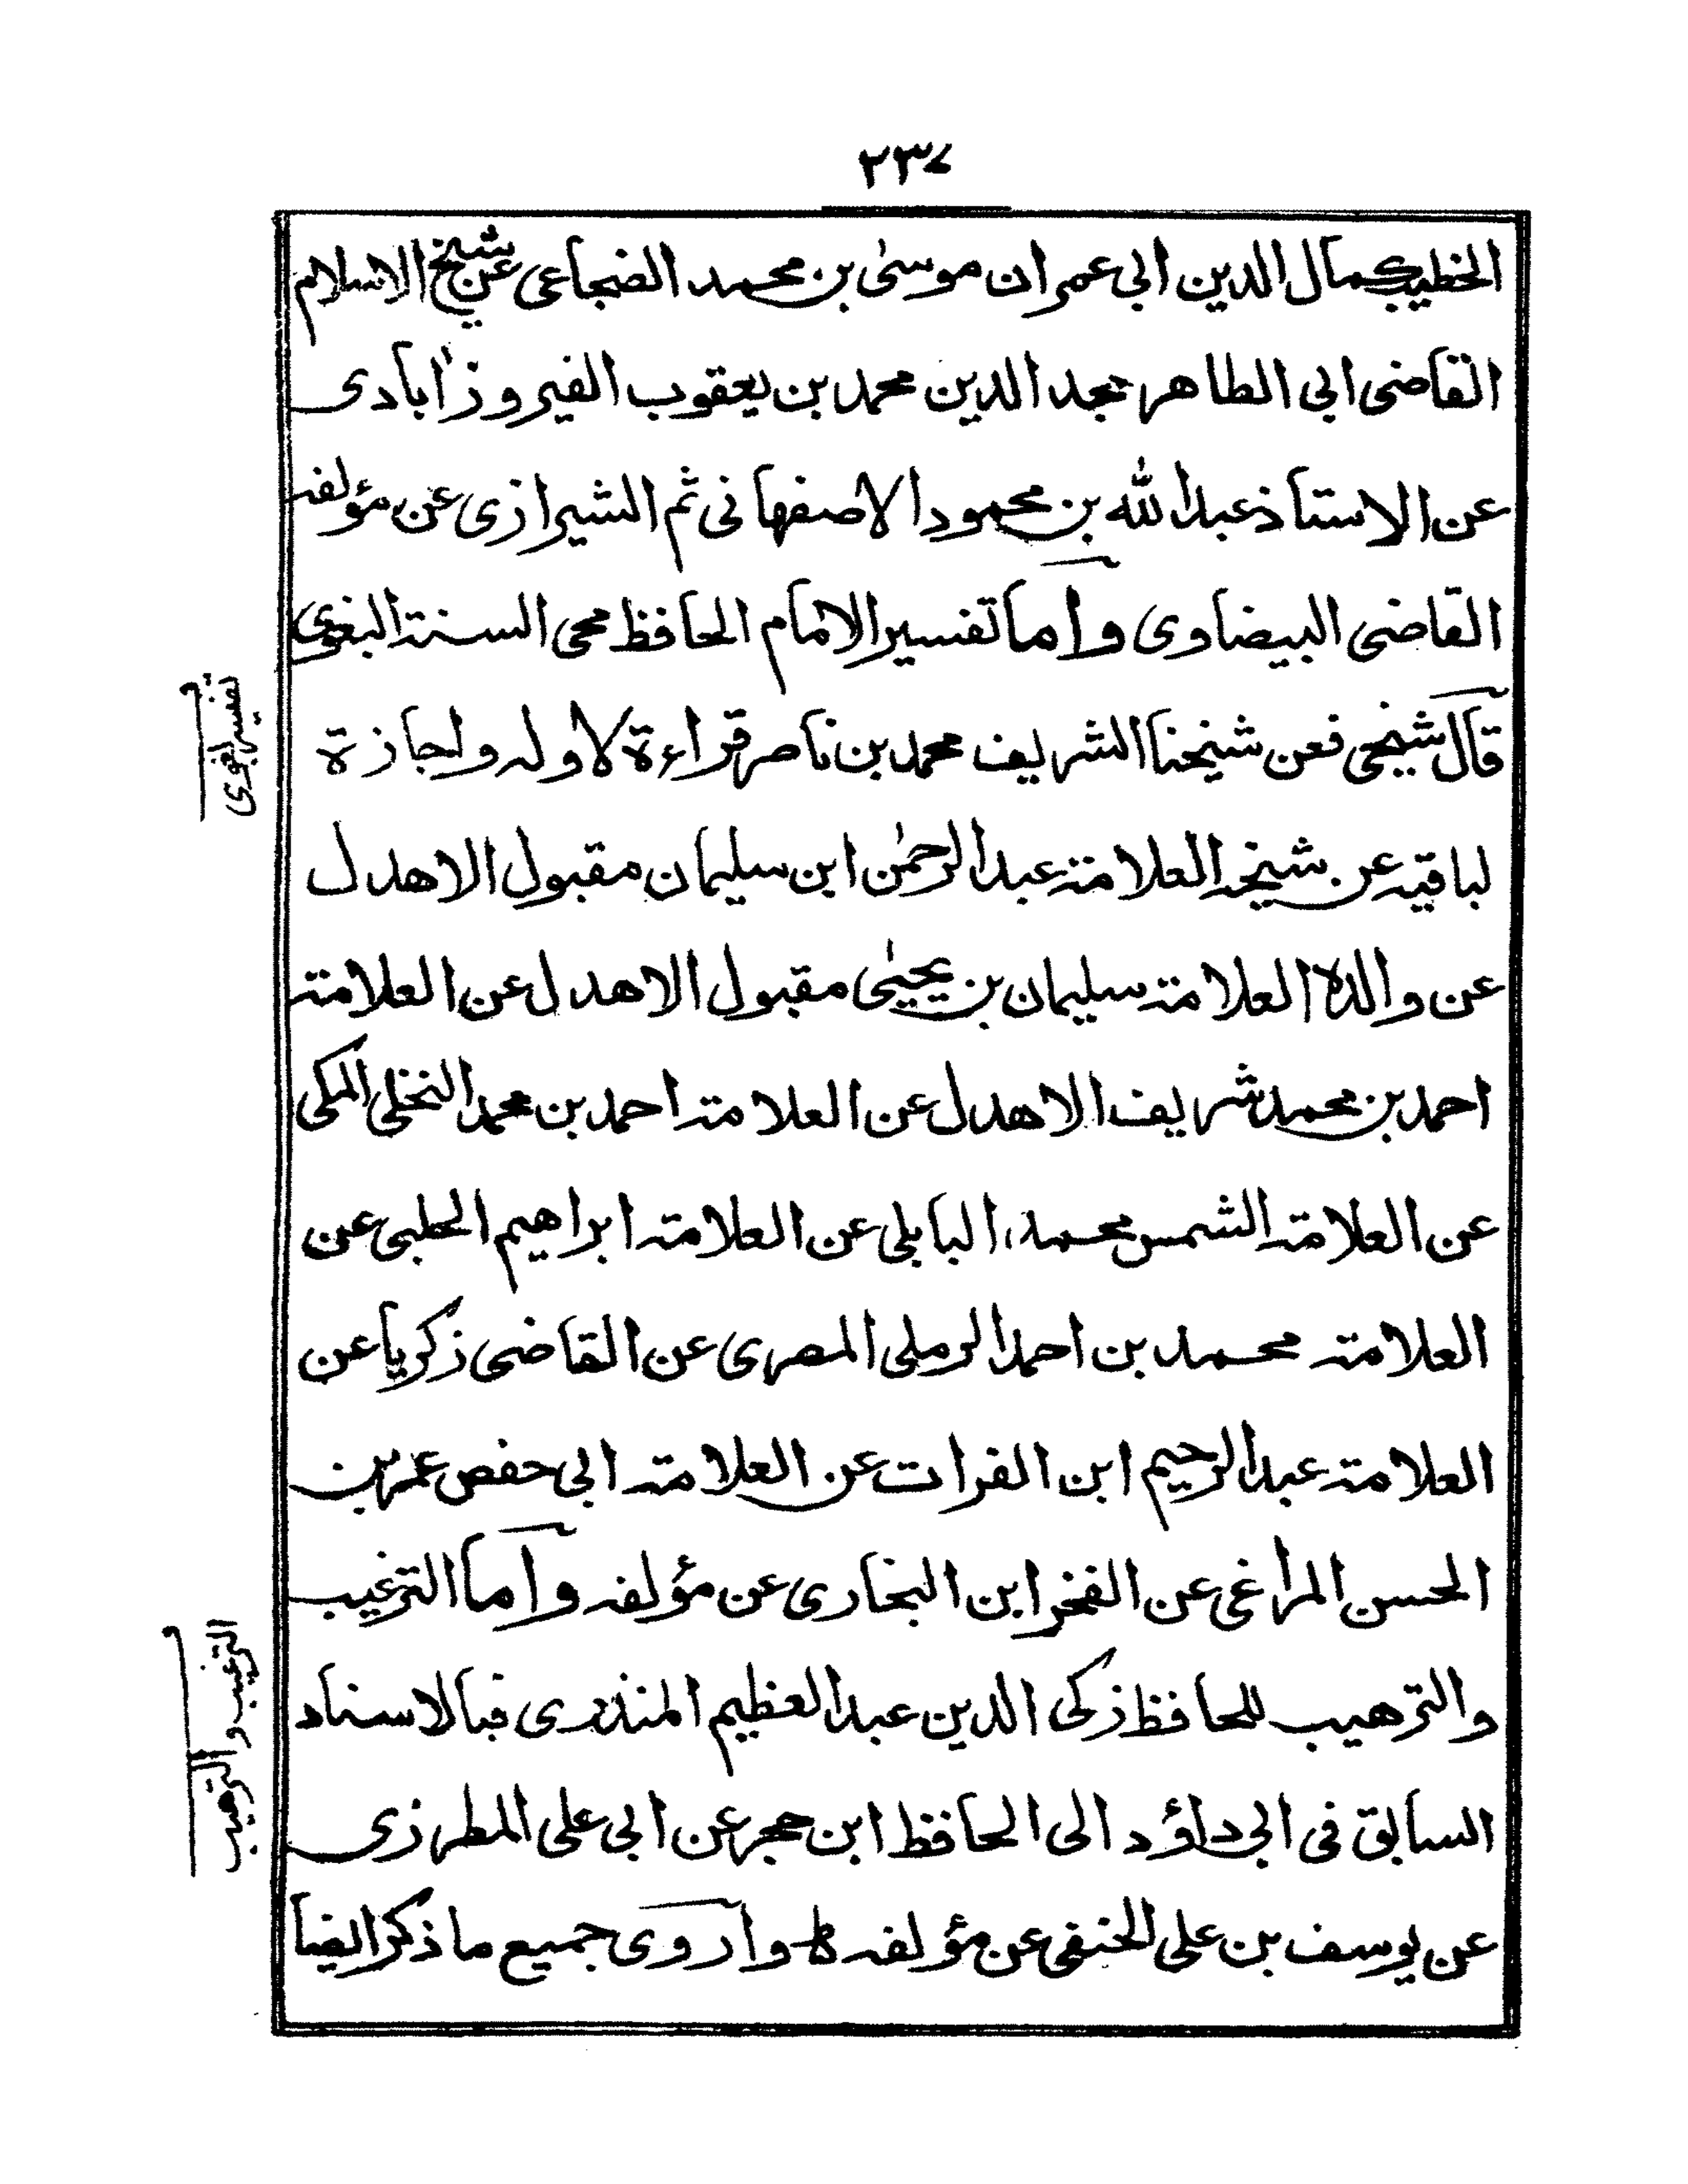 ٢٣٧
الخطيب كمال الدين ابي عمران موسىٰ بن محمد الضجاعی عن شيخ الاسلام
القاضی ابی الطاهر مجد الدين محمد بن يعقوب الفيروزاٰبادی
عن الاستاذ عبد الله بن محمود الاصفهانی ثم الشيرازی عن مؤلفه
القاضی البيضاوی وأما تفسير الامام الحافظ محی السنة البغوی
قال شيخی فعن شيخنا الشريف محمد بن ناصر قراءة لاوله واجازة
لباقيه عن شيخه العلامة عبد الرحمٰن ابن سليمان مقبول الاهدل
عن والده العلامة سليمان بن يحيیٰ مقبول الاهدل عن العلامة
احمد بن محمد شريف الاهدل عن العلامة احمد بن محمد النخلی المكی
عن العلامة الشمس محمد البابلی عن العلامة ابراهيم الحلبی عن
العلامة محمد بن احمد الرملی المصری عن القاضی زكريا عن
العلامة عبد الرحيم ابن الفرات عن العلامة ابی حفص عمر بن
الحسن المراغی عن الفخر ابن البخاری عن مؤلفه وأما الترغيب
والترهيب للحافظ زكی الدين عبد العظيم المنذری فبالاسناد
السابق فی ابی داؤد الی الحافظ ابن حجر عن ابی علی المطرزی
عن يوسف بن علی الحنفی عن مؤلفه ح وأروی جميع ما ذكر ايضا
تفسير البغوی
الترغيب والترهيب